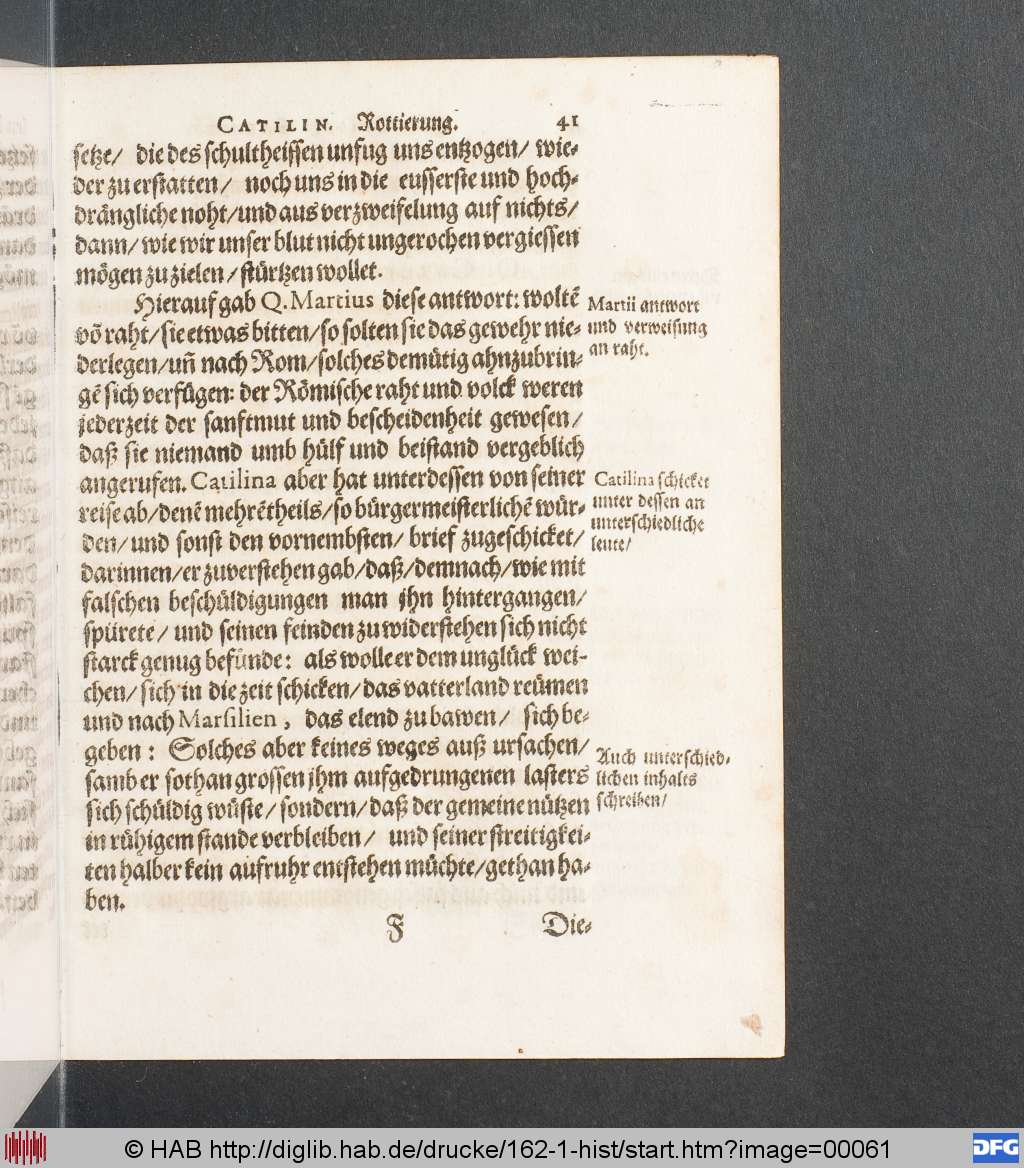 CATILIN. Rottierung. 41
setze/ die des schultheissen unfug uns entzogen/ wie-
der zu erstatten/ noch uns in die eusserste und hoch-
drängliche noht/und aus verzweifelung auf nichts/
dann/wie wir unser blut nicht ungerochen vergiessen
mögen zu zielen/stürtzen wollet.
Hierauf gab Q. Martius diese antwort: woltẽ
võ raht/sie etwas bitten/so solten sie das gewehr nie-
derlegen/uñ nach Rom/solches demütig ahnzubrin-
gẽ sich verfügen: der Römische raht und volck weren
jederzeit der sanftmut und bescheidenheit gewesen/
daß sie niemand umb hülf und beistand vergeblich
angerufen. Catilina aber hat unterdessen von seiner
reise ab/denẽ mehrẽtheils/so bürgermeisterlichẽ wür-
den/und sonst den vornembsten/brief zugeschicket/
darinnen/er zuverstehen gab/daß/demnach/wie mit
falschen beschüldigungen man jhn hintergangen/
spürete/ und seinen feinden zu widerstehen sich nicht
starck genug befünde: als wolle er dem unglück wei-
chen/sich in die zeit schicken/das vatterland reümen
und nach Marsilien, das elend zu bawen/ sich be-
geben: Solches aber keines weges auß ursachen/
samb er sothan grossen jhm aufgedrungenen lasters
sich schüldig wüste/sondern/daß der gemeine nützen
in rühigem stande verbleiben/ und seiner streitigkei-
ten halber kein aufruhr entstehen müchte/gethan ha-
ben.
F Die-
Martii antwort
und verweisung
an raht.
Catilina schicket
unter dessen an
unterschiedliche
leute/
Auch unterschied-
lichen inhalts
schreiben/
© HAB http://diglib.hab.de/drucke/162-1-hist/start.htm?image=00061
DFG